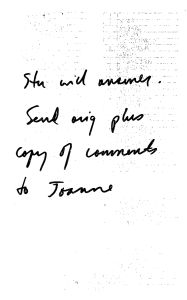 Stu will answer.
Send orig plus
copy of comments
to Joanne